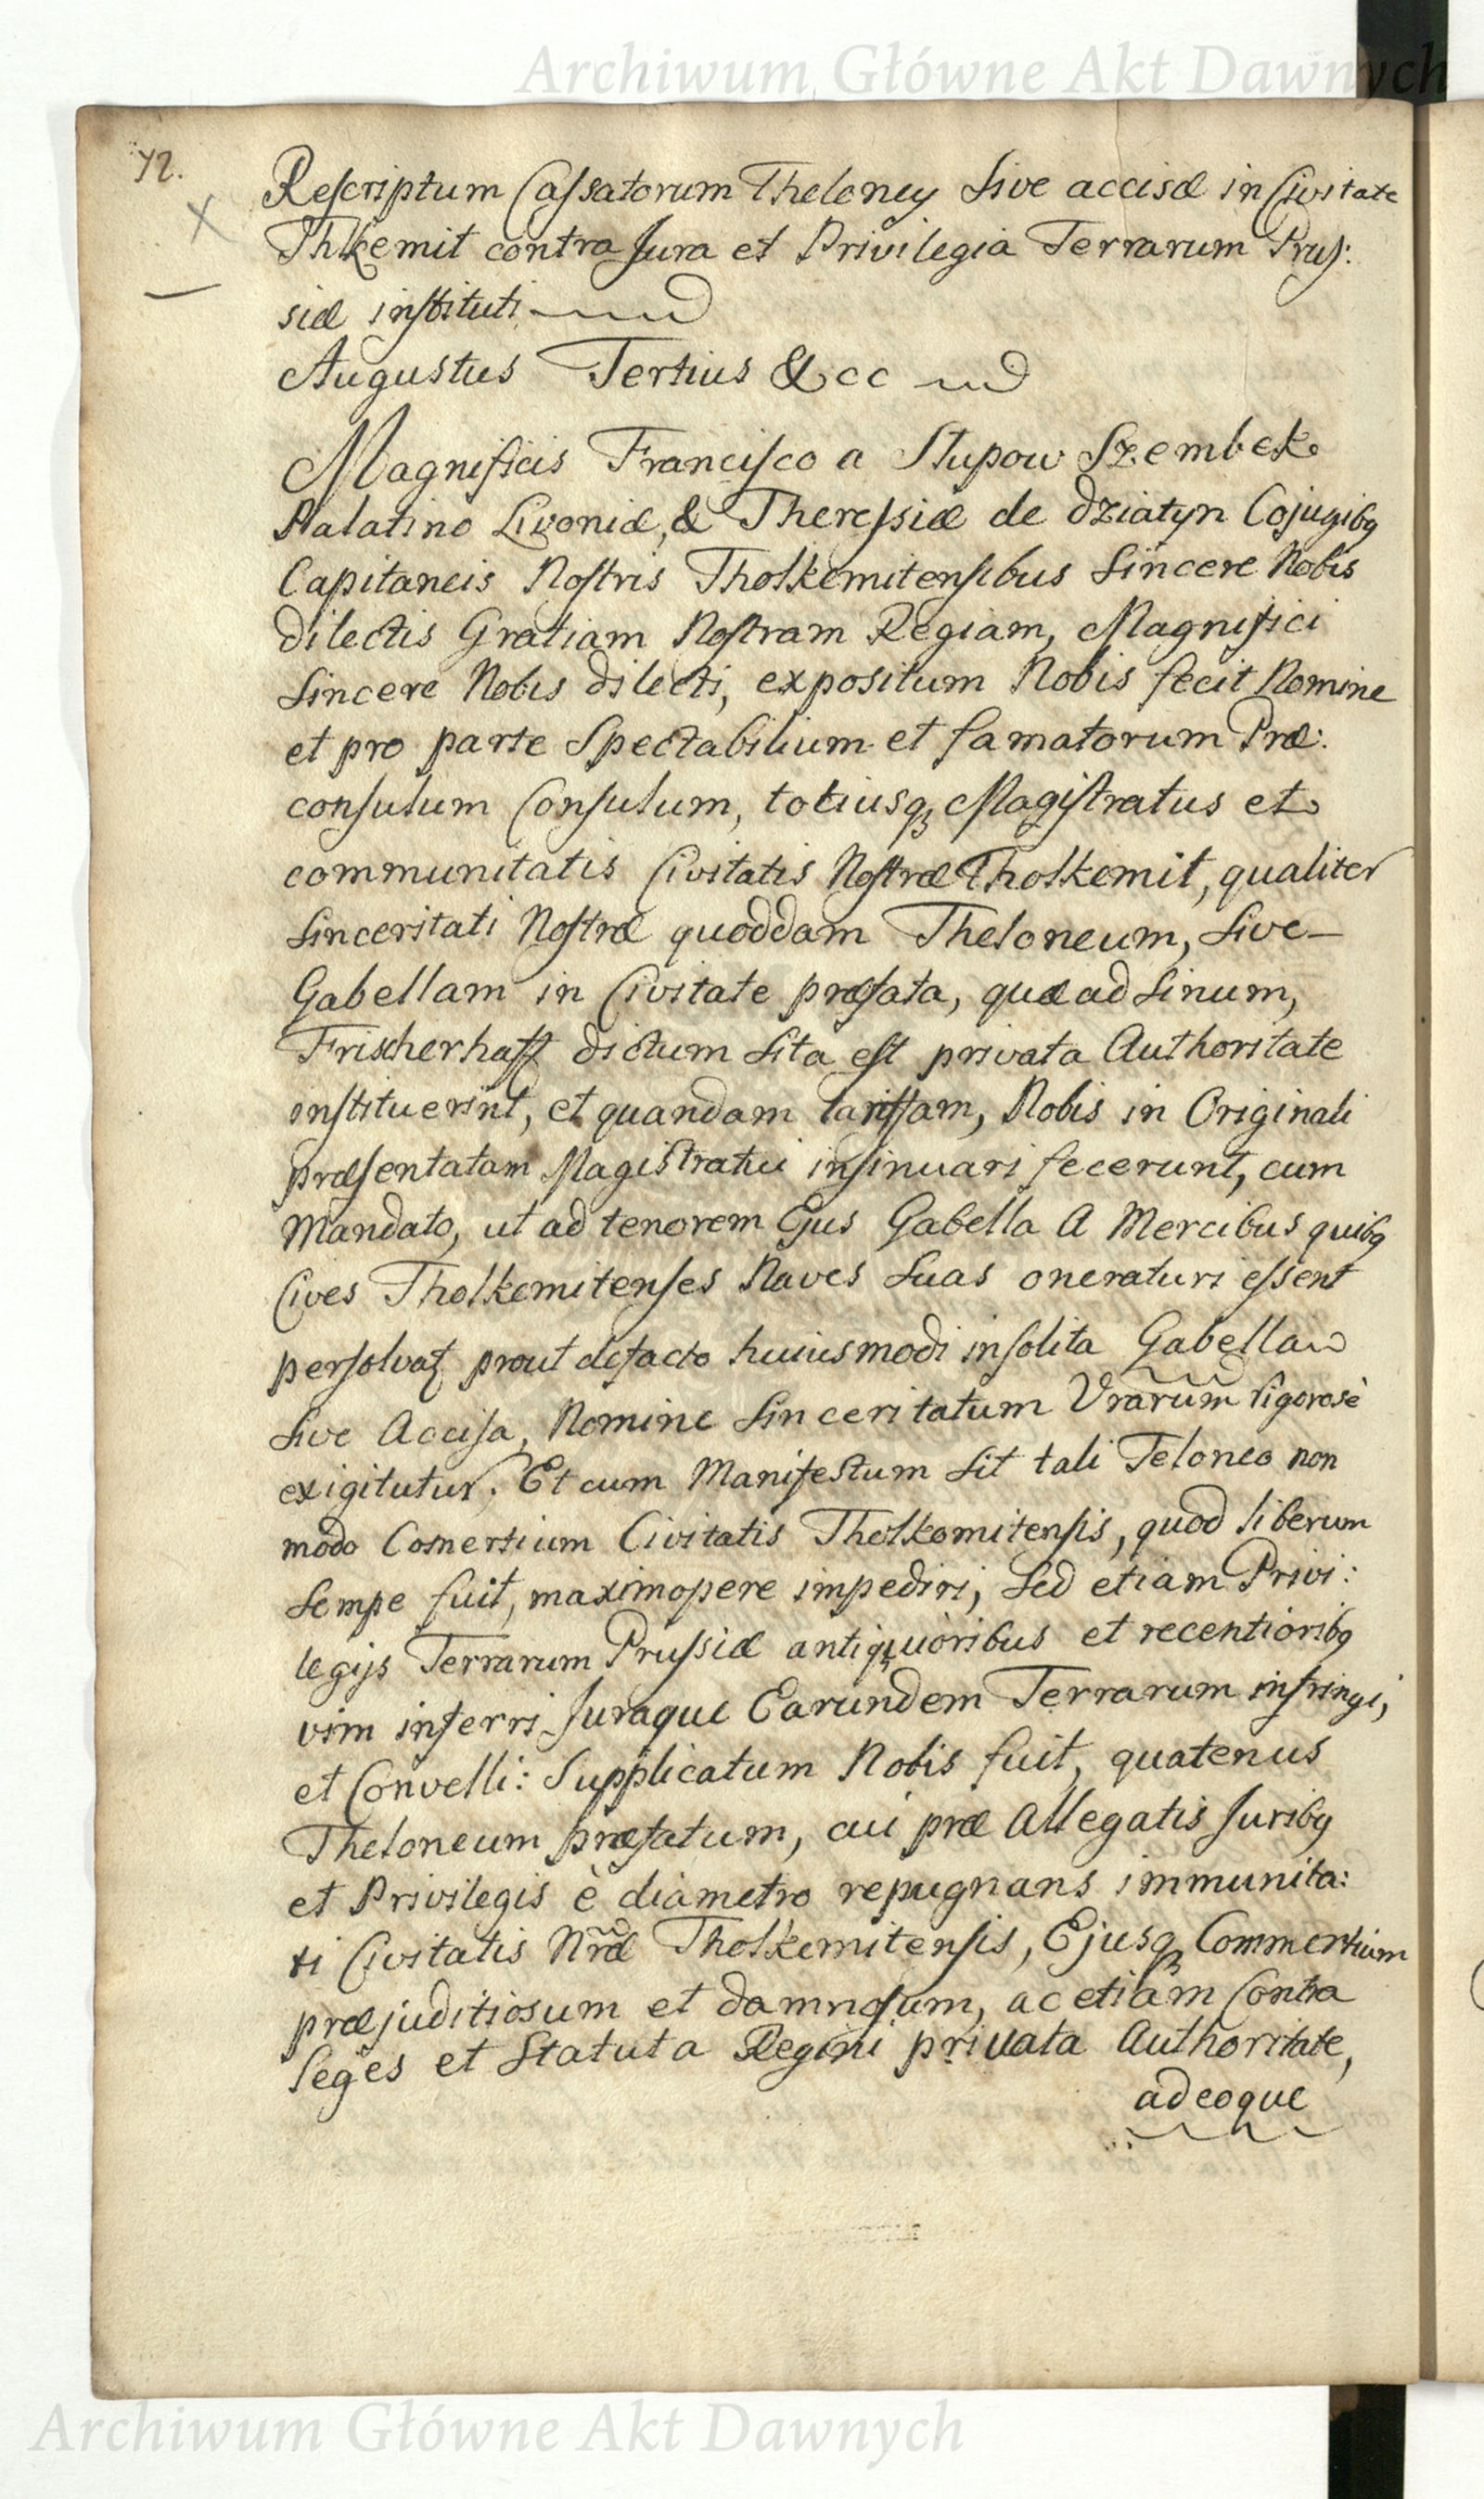 Archiwum Główne Akt Dawnych
72.
X
Rescriptum Cassatorum Theloney Sive accisæ in Civitate
Thlkemit contra Jura et Privilegia Terrarum Prus:
siæ instituti
Augustus Tertius &cc
Magnificis Francisco a Slupow Szembek
Palatino Livoniæ, & Theressiæ de dziatyn Cojugibꝫ
Capitaneis Nostris Tholkemitensibus Sincere Nobis
dilectis Gratiam Nostram Regiam, Magnifici
Sincere Nobis dilecti, expositum Nobis fecit Nomine
et pro parte Spectabilium et famatorum Præ:
consulum Consulum, totiusqꝫ Magistratus et
communitatis Civitatis Nostræ Tholkemit, qualiter
Sinceritati Nostræ quoddam Theloneum, Sive
Gabellam in Civitate præfata, quæ ad Sinum,
Frischerhaff dictum Sita est privata Authoritate
instituerint, et quandam tariffam, Nobis in Originali
præsentatam Magistratui insinuari fecerunt, cum
Mandato, ut ad tenorem Ejus Gabella a Mercibus quibꝫ
Cives Tholkemitenses Naves Suas oneraturi essent
persolvat prout defacto huiusmodi insolita Gabella
Sive Accisa, Nomine Sinceritatum Vrarum rigorosè
exigitutur. Et cum Manifestum sit tali Teloneo non
modo Comertium Civitatis Tholkemitensis, quod liberum
Sempe fuit, maximopere impediri, Sed etiam Privi:
legijs Terrarum Prussiæ antiquioribus et recentioribꝫ
vim inferri Juraque Earundem Terrarum infringi,
et Convelli: Supplicatum Nobis fuit, quatenus
Theloneum præfatum, cui præ allegatis Juribꝫ
et Privilegis è diametro repugnans immunita:
ti Civitatis Nræ Tholkemitensis, Ejusqꝫ Commertium
præjuditiosum et damnosum, ac etiam Contra
Leges et Statuta Regini privata Authoritate,
adeoque
Archiwum Główne Akt Dawnych